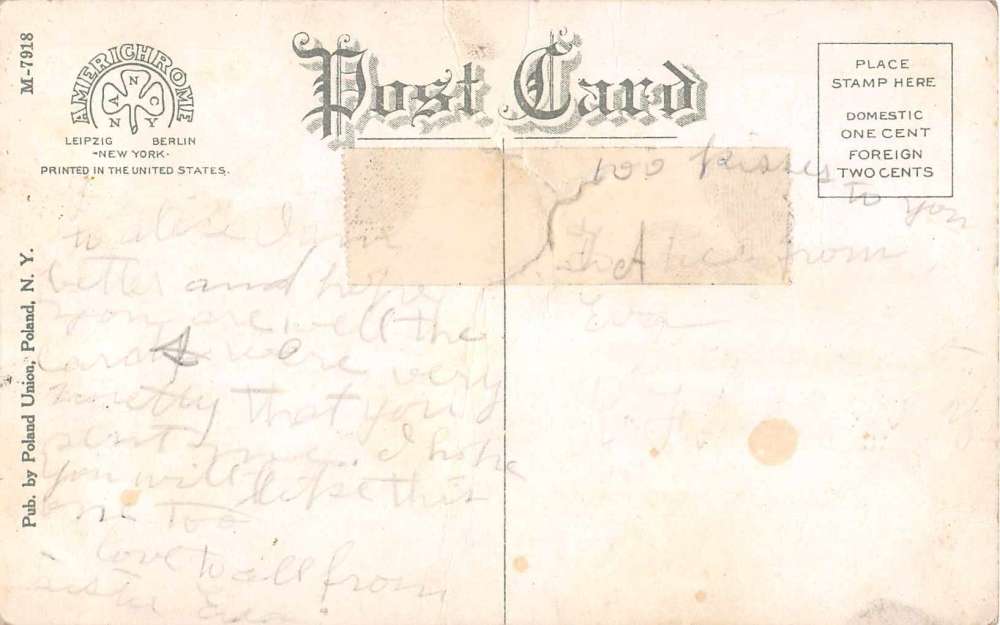 M-7918
AMERICHROME
A N C
N Y
LEIPZIG BERLIN
-NEW YORK-
PRINTED IN THE UNITED STATES.
Post Card
PLACE
STAMP HERE
DOMESTIC
ONE CENT
FOREIGN
TWO CENTS
Pub. by Poland Union, Poland, N. Y.
to alice I am
better and hope
you are well the
cards were very
pretty that you
sent me. I hope
you will like this
one too
love to all from
Eva
100 kisses
to you
To Alice from
Eva